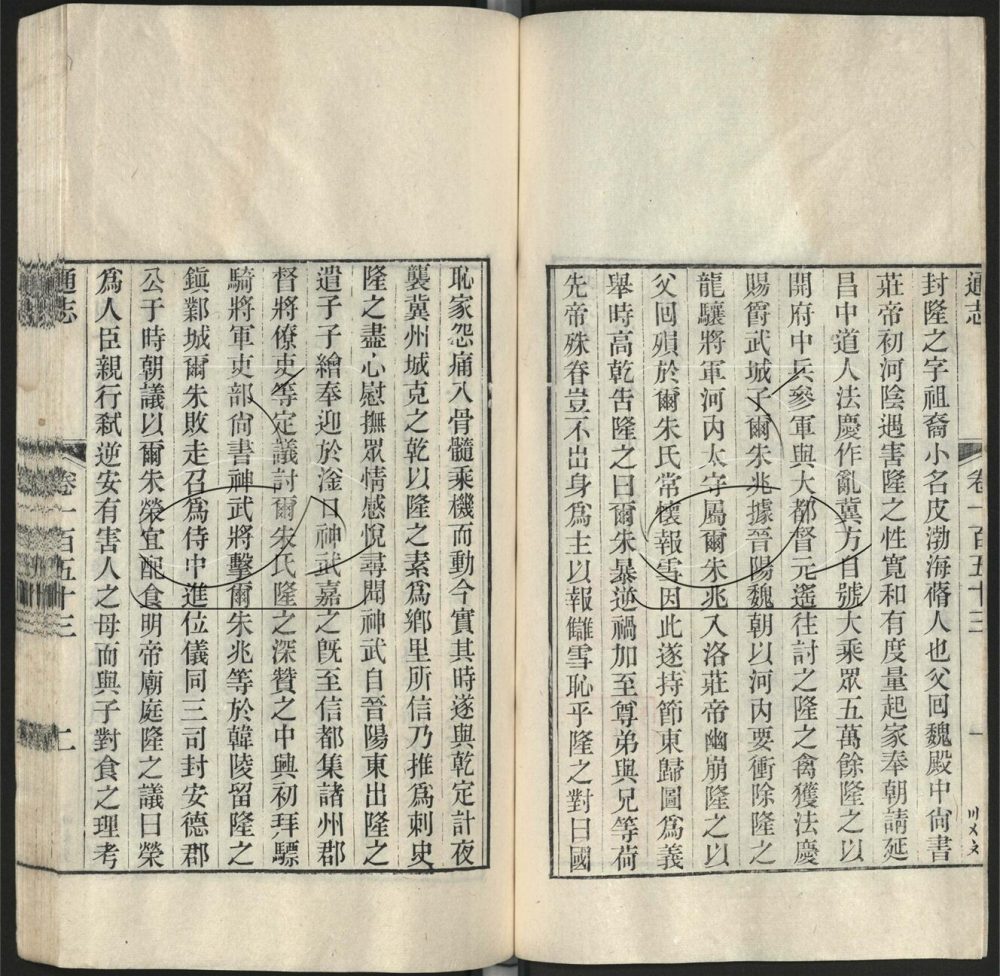 通志
卷一百五十三
一
封隆之字祖裔小名皮渤海脩人也父回魏殿中尙書
莊帝初河陰遇害隆之性寬和有度量起家奉朝請延
昌中道人法慶作亂冀方自號大乘眾五萬餘隆之以
開府中兵參軍與大都督元遙往討之隆之禽獲法慶
賜爵武城子爾朱兆據晉陽魏朝以河內要衝除隆之
龍驤將軍河內太守屬爾朱兆入洛莊帝幽崩隆之以
父回殞於爾朱氏常懷報雪因此遂持節東歸圖爲義
舉時高乾告隆之曰爾朱暴逆禍加至尊弟與兄等荷
先帝殊眷豈不出身爲主以報讎雪恥乎隆之對曰國
恥家怨痛入骨髓乘機而動今實其時遂與乾定計夜
襲冀州城克之乾以隆之素爲鄉里所信乃推爲刺史
隆之盡心慰撫眾情感悅尋聞神武自晉陽東出隆之
遣子子繪奉迎於滏口神武嘉之旣至信都集諸州郡
督將僚吏等定議討爾朱氏隆之深贊之中興初拜驃
騎將軍吏部尙書神武將擊爾朱兆等於韓陵留隆之
鎭鄴城爾朱敗走召爲侍中進位儀同三司封安德郡
公于時朝議以爾朱榮宜配食明帝廟庭隆之議曰榮
爲人臣親行弒逆安有害人之母而與子對食之理考
通志
卷一百五十三
二